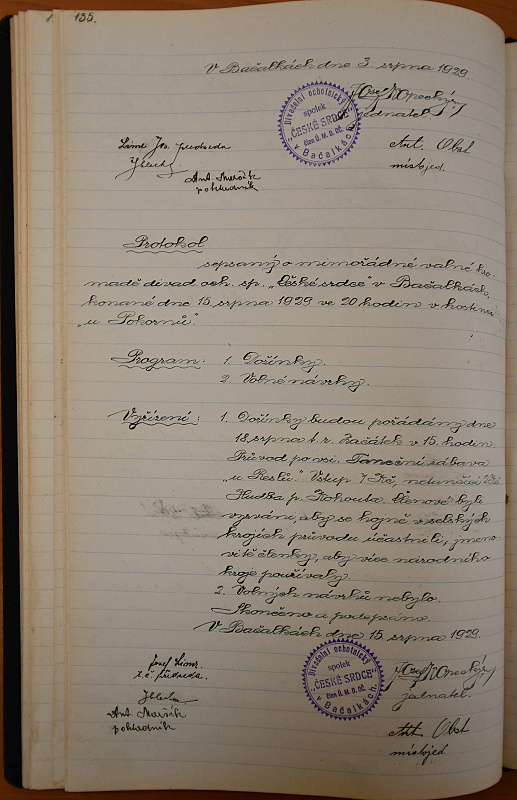 135.
V Bačalkách dne 3. srpna 1929.
Divadelní ochotnický
spolek
„ČESKÉ SRDCE“
člen Ú. M. D. OČ.
v Bačalkách.
Josef Kopecký
jednatel.
Jos. předseda
Ant. Obst
místojed.
Ant. Maršák
pokladník
Protokol
sepsaný o mimořádné valné hro-
madě divad. och. sp. „České srdce“ v Bačalkách,
konané dne 15. srpna 1929 ve 20 hodin v hostinci
„u Pokornů“.
Program: 1. Dožínky.
2. Volné návrhy.
Vyřízení: 1. Dožínky budou pořádány dne
18. srpna t. r. Začátek v 15. hodin.
Průvod po vsi. Taneční zábava
„u Reslů.“ Vstup 7 Kč, netančící 2 Kč
Hudba p. Kohouta. Členové byli
vyzváni, aby se hojně v selských
krojích průvodu účastnili, jmeno-
vitě členky, aby více národního
kroje používaly.
2. Volných návrhů nebylo.
Skončeno a podepsáno.
V Bačalkách dne 15. srpna 1929.
Josef
t. č. předseda.
Divadelní ochotnický
spolek
„ČESKÉ SRDCE“
člen Ú. M. D. OČ.
v Bačalkách.
Josef Kopecký
jednatel.
Ant. Maršák
pokladník
Ant. Obst
místojed